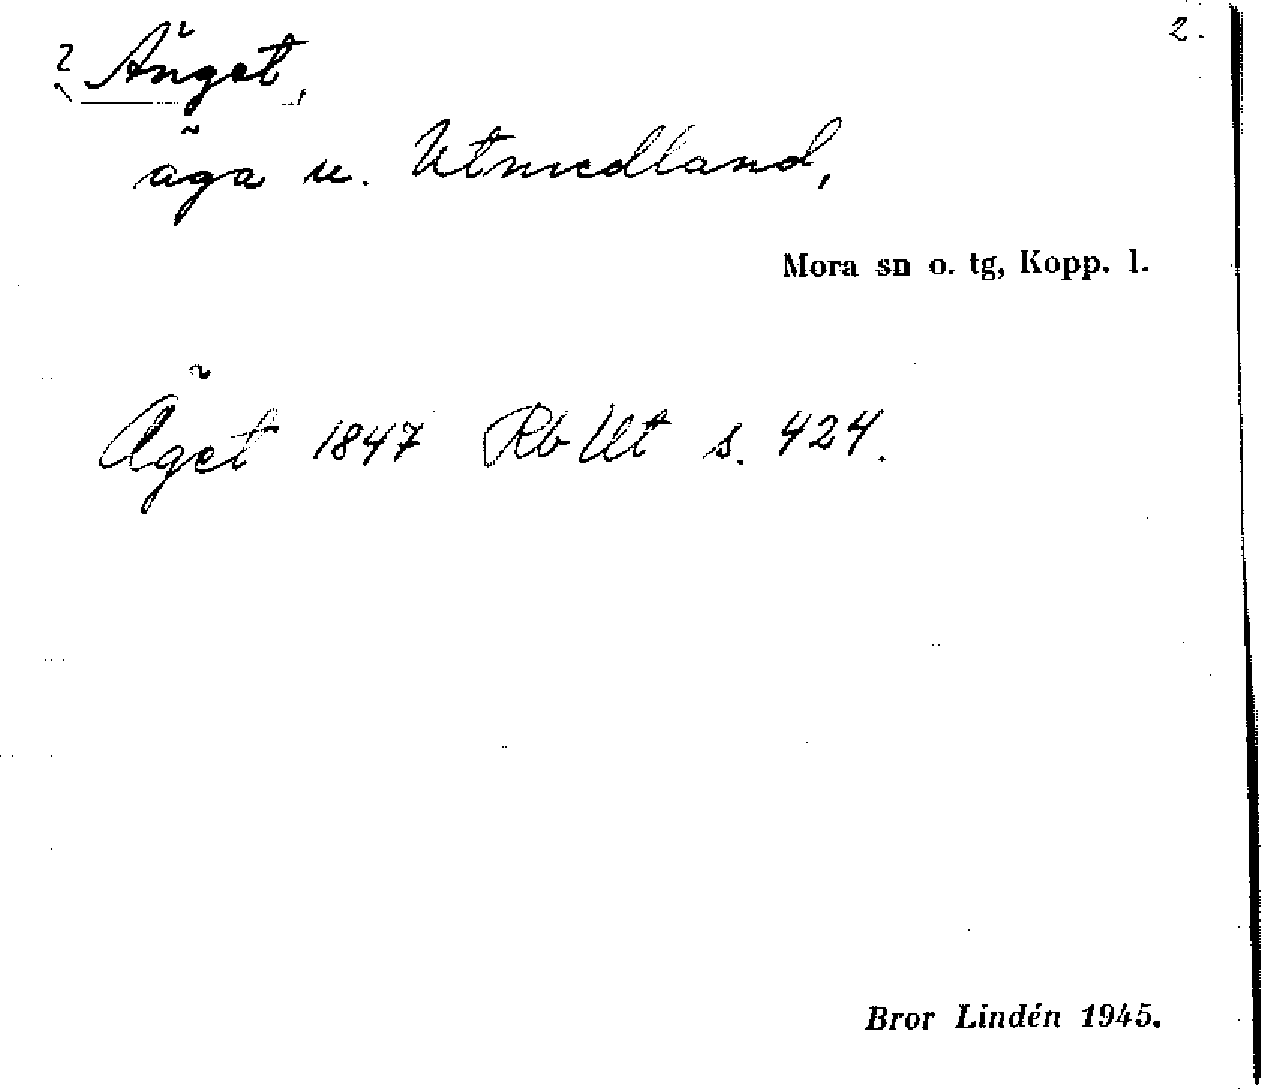 2.
? Änget,
äga u. Utmedland,
Mora sn o. tg, Kopp. l.
Äget 1847 Rb Ut s. 424.
Bror Lindén 1945.